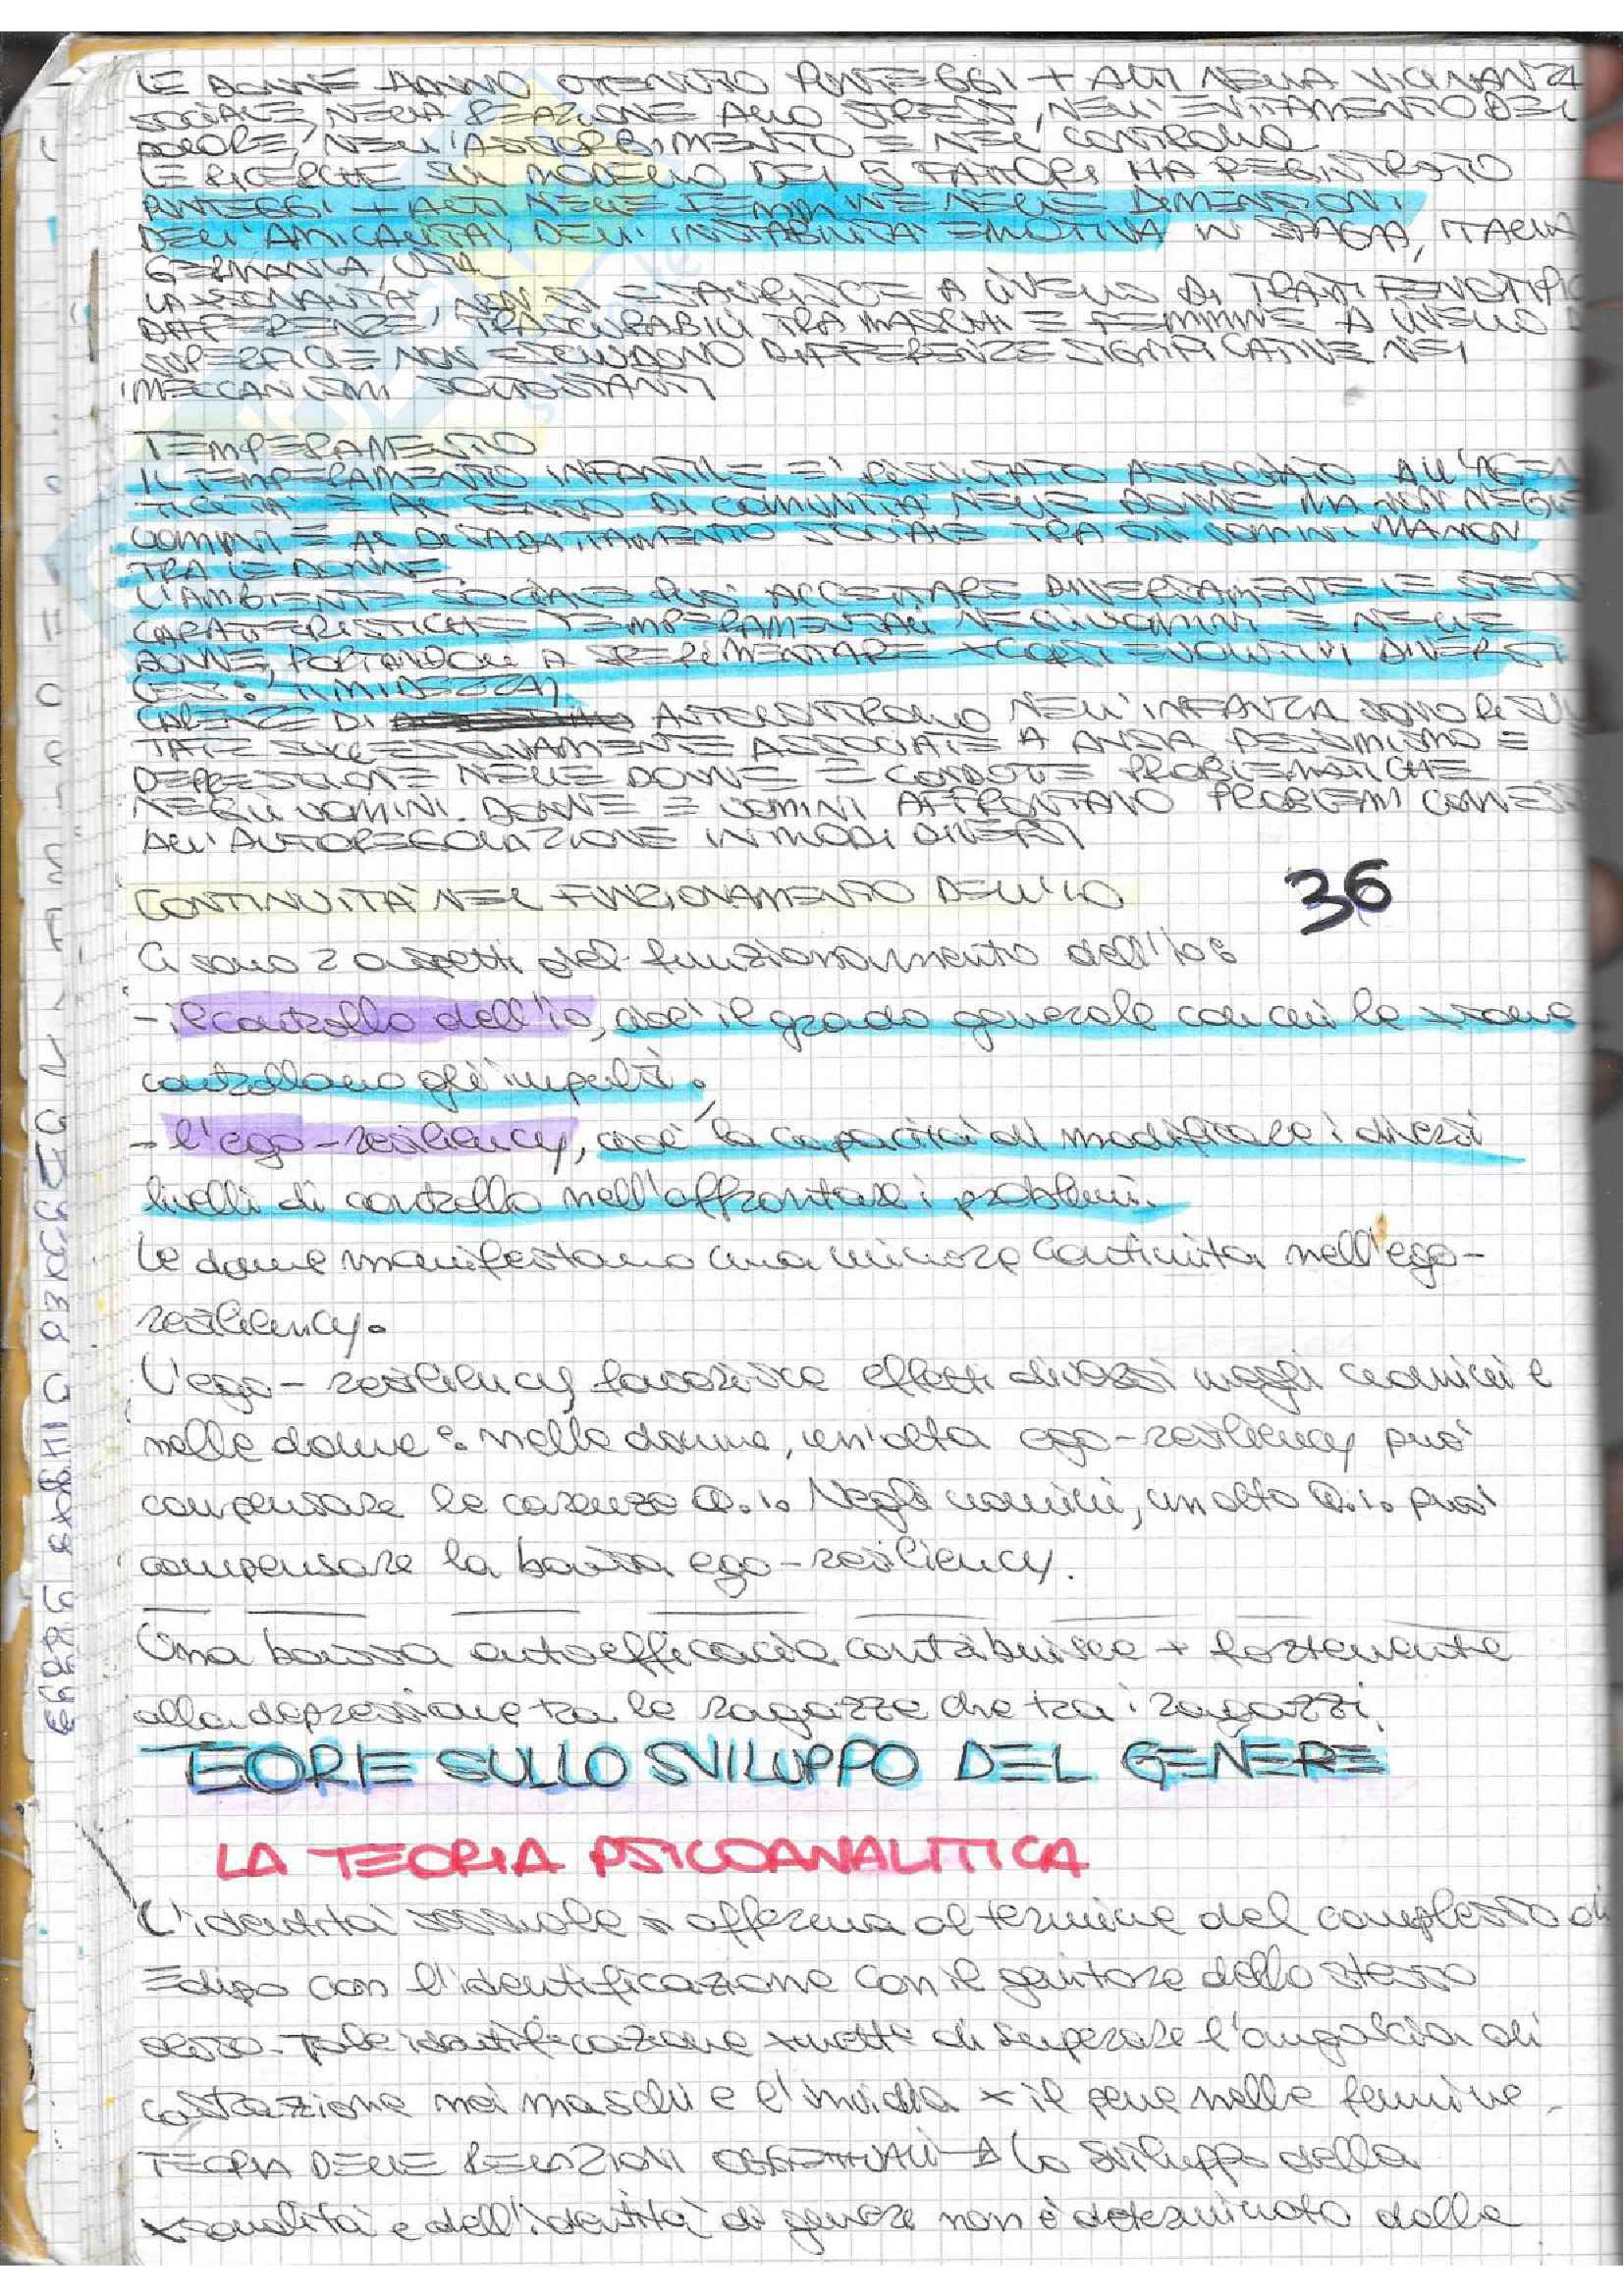 LE DONNE HANNO OTTENUTO PUNTEGGI + ALTI NELLA VICINANZA
SOCIALE, NELLA REAZIONE ALLO STRESS, NELL'EVITAMENTO DEL
DOLORE, NELL'ASSORBIMENTO E NEL CONTROLLO
LE RICERCHE SUL MODELLO DEI 5 FATTORI HA REGISTRATO
PUNTEGGI + ALTI NELLE FEMMINE NELLE DIMENSIONI
DELL'AMICALITÀ, DELL'INSTABILITÀ EMOTIVA IN SPAGNA, ITALIA
GERMANIA, USA
LA XSONALITÀ NON SI ESAURISCE A LIVELLO DI TRATTI FENOTIPIC
DIFFERENZE TRASCURABILI TRA MASCHI E FEMMINE A LIVELLO D
SUPERFICIE NON ESCLUDONO DIFFERENZE SIGNIFICATIVE NEI
MECCANISMI SOTTOSTANTI
TEMPERAMENTO
IL TEMPERAMENTO INFANTILE E' RISULTATO ASSOCIATO ALL'AGEN
TICITÀ E AL SENSO DI COMUNITÀ NELLE DONNE MA NON NEGLI
UOMINI E AL DISADATTAMENTO SOCIALE TRA GLI UOMINI MA NON
TRA LE DONNE
L'AMBIENTE SOCIALE PUO' ACCETTARE DIVERSAMENTE LE STESS
CARATTERISTICHE TEMPERAMENTALI NEGLI UOMINI E NELLE
DONNE, PORTANDOLI A SPERIMENTARE XCORSI EVOLUTIVI DIVERSI
(ES: TIMIDEZZA)
CARENZE DI AUTOCONTROLLO NELL'INFANZIA SONO RISUL
TATE SUCCESSIVAMENTE ASSOCIATE A ANSIA, PESSIMISMO E
DEPRESSIONE NELLE DONNE E CONDOTTE PROBLEMATICHE
NEGLI UOMINI. DONNE E UOMINI AFFRONTANO PROBLEMI CONNESS
ALL'AUTOREGOLAZIONE IN MODI DIVERSI
CONTINUITÀ NEL FUNZIONAMENTO DELL'IO
36
Ci sono 2 aspetti del funzionamento dell'io:
- il controllo dell'io, cioè il grado generale con cui le xsone
controllano gli impulsi;
- l'ego-resiliency, cioè la capacità di modificare i diversi
livelli di controllo nell'affrontare i problemi.
Le donne manifestano una minore continuità nell'ego-
resiliency.
L'ego-resiliency favorisce effetti diversi negli uomini e
nelle donne: nelle donne, un'alta ego-resiliency può
compensare le carenze Q.I. Negli uomini, un alto Q.I. può
compensare la bassa ego-resiliency.
Una bassa autoefficacia contribuisce + fortemente
alla depressione tra le ragazze che tra i ragazzi.
TEORIE SULLO SVILUPPO DEL GENERE
LA TEORIA PSICOANALITICA
L'identità sessuale si afferma al termine del complesso di
Edipo con l'identificazione con il genitore dello stesso
sesso. Tale identificazione xmette di superare l'angoscia di
castrazione nei maschi e l'invidia x il pene nelle femmine.
TEORIA DELLE RELAZIONI OGGETTUALI → Lo sviluppo della
xsonalità e dell'identità di genere non è determinato dalla